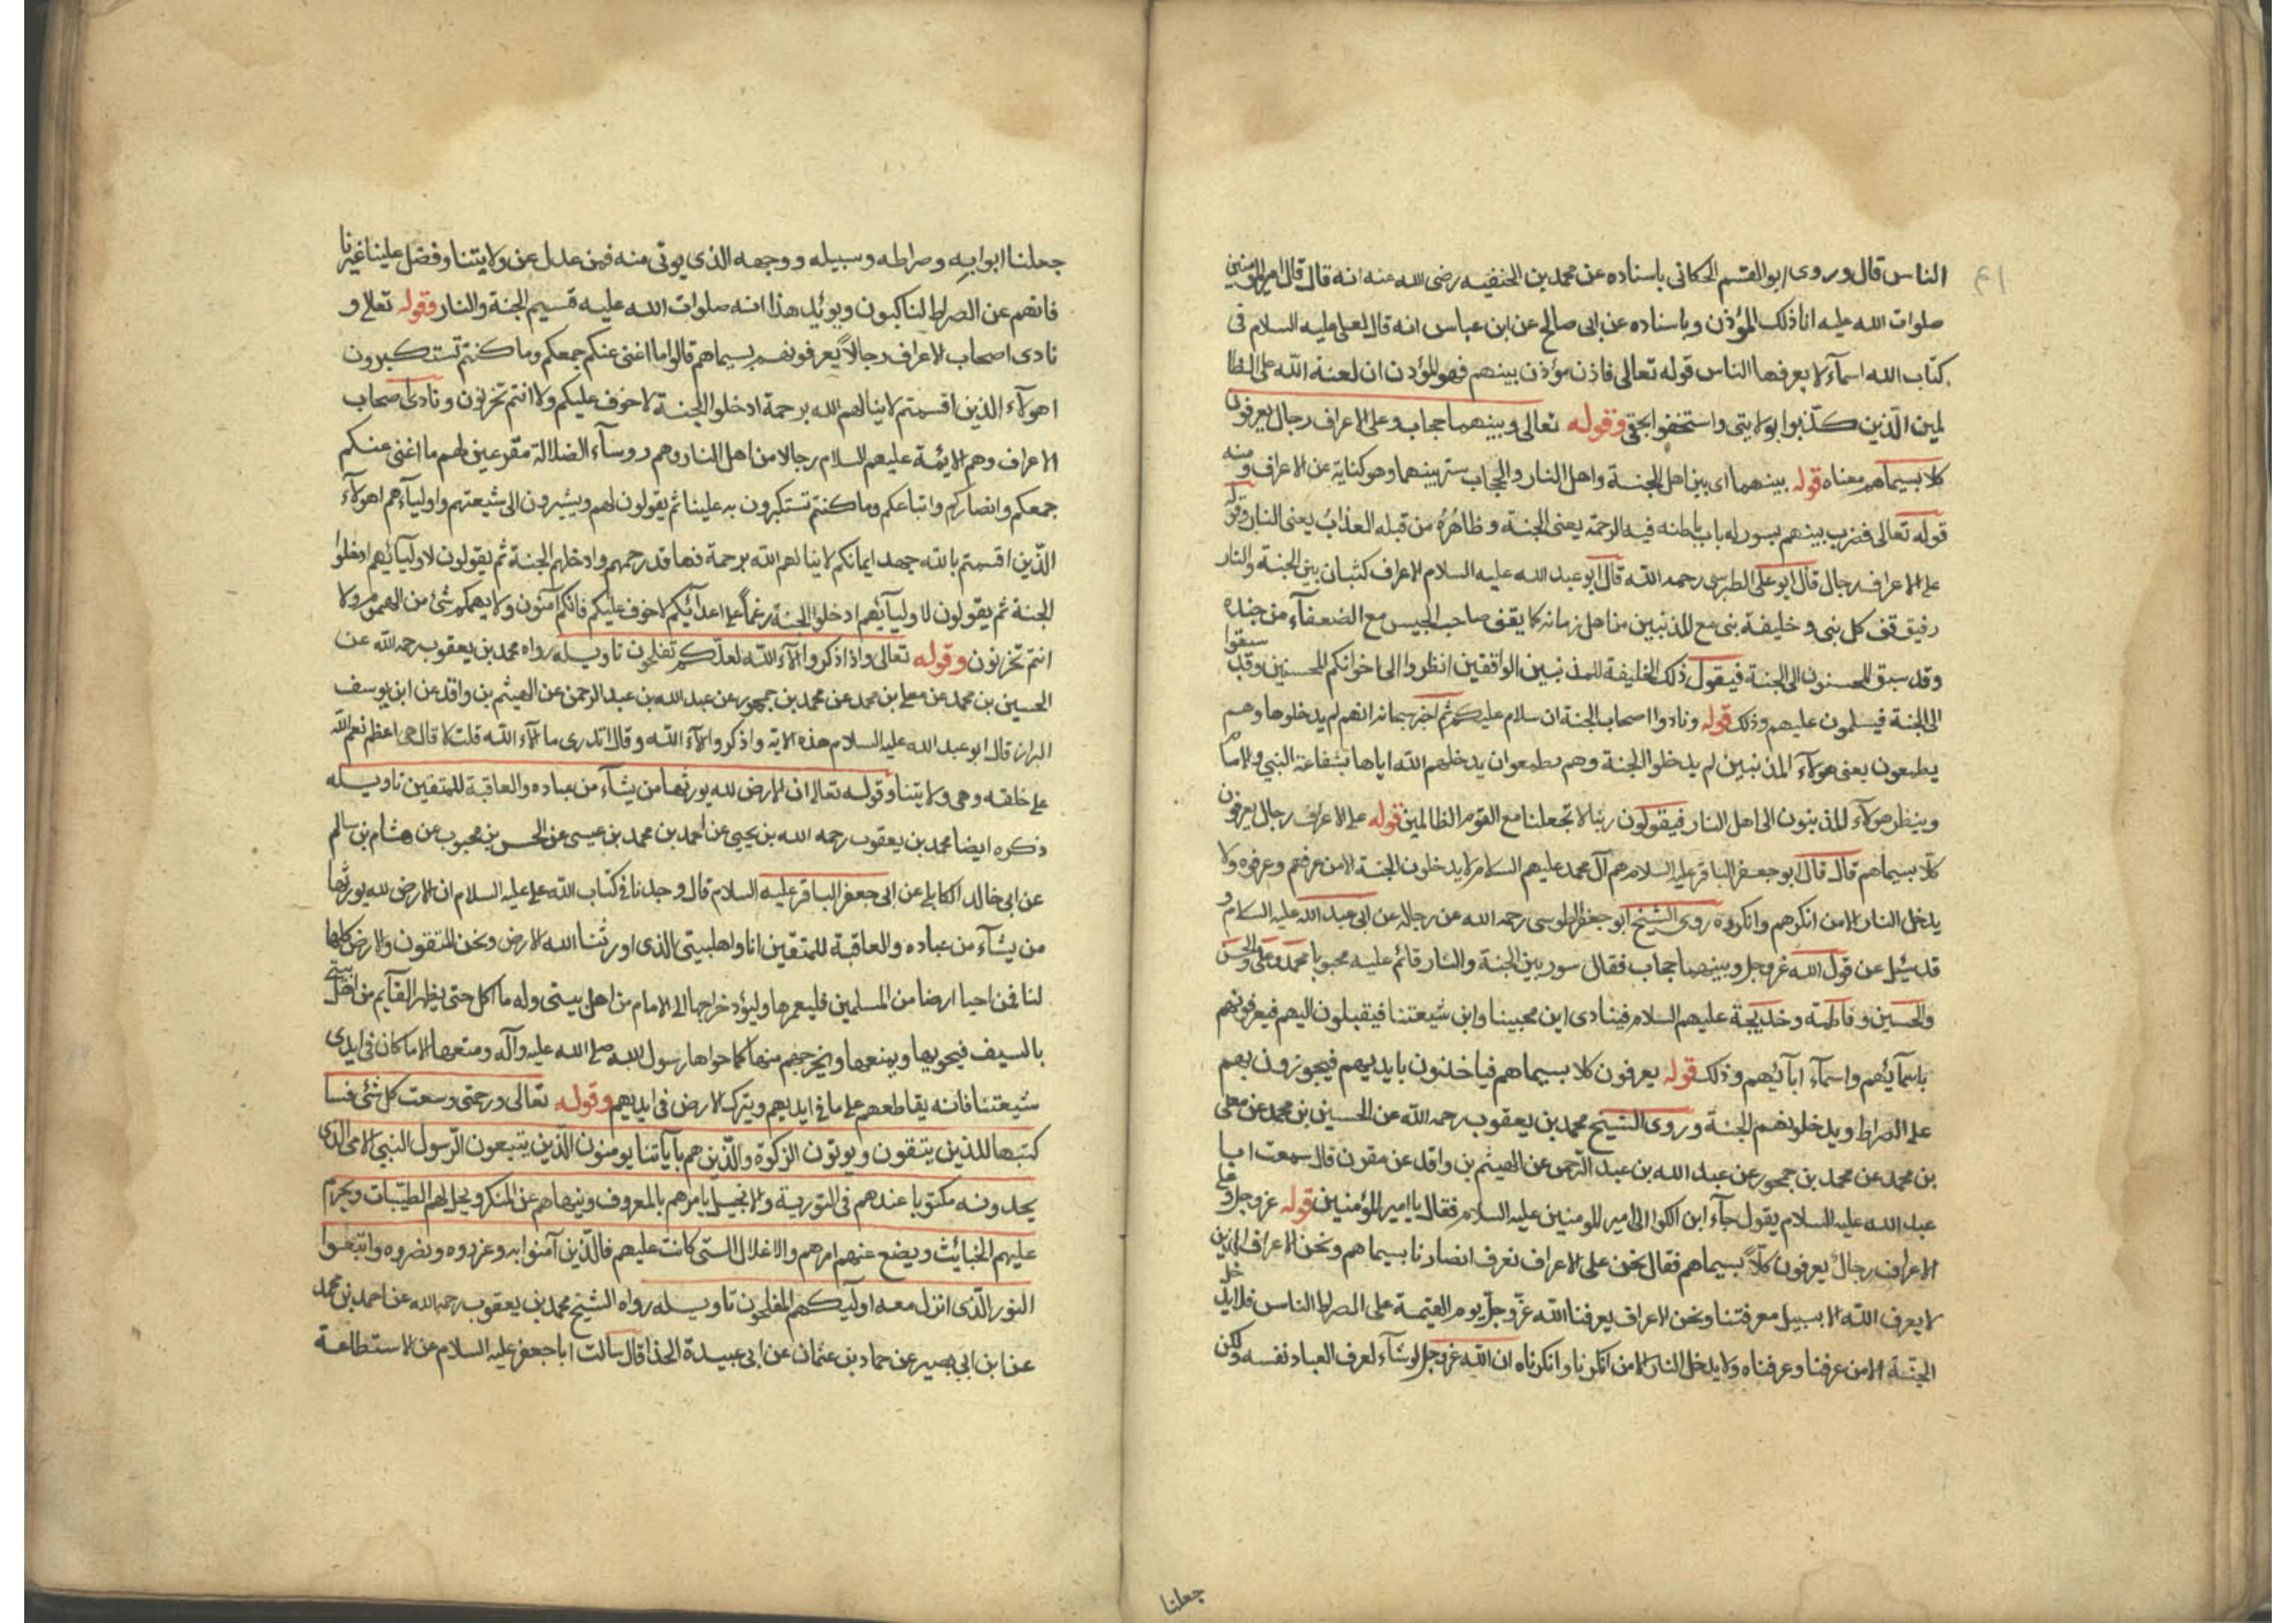 الناس قال وروى ابو القسم الحكانى باسناده عن محمد بن الحنفيه رضى الله عنه انه قال قال امير المؤمنين
صلوات الله عليه انا ذلك المؤذن وباسناده عن ابى صالح عن ابن عباس انه قال لعلى عليه السلام فى
كتاب الله اسمآء لا يعرفها الناس قوله تعالى فاذن مؤذن بينهم فهو المؤذن ان لعنة الله على الظا
لمين الّذين كذّبوا بولايتى واستخفوا بحقى وقوله تعالى وبينهما حجاب وعلى الاعراف رجال يعرفون
كلا بسيماهم معناه قوله بينهما اى بين اهل الجنة واهل النار والحجاب ستر بينهما وهو كناية عن الاعراف ومنه
قوله تعالى فضرب بينهم بسور له باب باطنه فيه الرحمة يعنى الجنة وظاهرُهُ من قبله العذابُ يعنى النار وقوله
على الاعراف رجال قال ابو على الطبرسى رحمه الله قال ابو عبد الله عليه السلام الاعراف كثبان بين الجنة والنار
فيوقف كل نبى وخليفة نبى مع المذنبين من اهل زمانه كما يقف صاحب الجيش مع الضعفآء من جنده
وقد سبق المحسنون الى الجنة فيقول ذلك الخليفة للمذنبين الواقفين انظروا الى اخوانكم المحسنين وقد سبقوا
الى الجنة فيسلمون عليهم وذلك قوله ونادوا اصحاب الجنة ان سلام عليكم ثم اخبر سبحانه انهم لم يدخلوها وهم
يطمعون يعنى هولآء المذنبين لم يدخلوا الجنة وهم يطمعوان يدخلهم الله اياها بشفاعة النبى والامام
وينظر هولآء المذنبون الى اهل النار فيقولون ربنا لا تجعلنا مع القوم الظالمين قوله على الاعراف رجال يعرفون
كلّا بسيماهم قال قال ابو جعفر الباقر عليه السلام هم آل محمد عليهم السلام لا يدخلون الجنة الا من عرفهم وعرفوه ولا
يدخل النار الا من انكرهم وانكروه روى الشيخ ابو جعفر الطوسى رحمه الله عن رجاله عن ابى عبد الله عليه السلام و
قد سئل عن قول الله عز وجل وبينهما حجاب فقال سور بين الجنة والنار قائم عليه محمد وعلى والحسن
والحسين وفاطمة وخديجة عليهم السلام فينادى اين محبينا واين شيعتنا فيقبلون اليهم فيعرفونهم
باسمآئهم واسمآء ابآئهم وذلك قوله يعرفون كلا بسيماهم فياخذون بايديهم فيجوزون بهم
على الصراط ويدخلونهم الجنة وروى الشيخ محمد بن يعقوب رحمه الله عن الحسين بن محمد عن معلى
بن محمد عن محمد بن جمهور عن عبد الله بن عبد الرّحمن عن الهيثم بن واقد عن مقرن قال سمعت ابا
عبد الله عليه السلام يقول جآء ابن الكوا الى امير المومنين عليه السلام فقال يا امير المؤمنين قوله عز وجل وعلى
الاعراف رجالٌ يعرفون كلّاً بسيماهم فقال نحن على الاعراف نعرف انصارنا بسيماهم ونحن الاعراف الذين
لا يعرف الله الا بسبيل معرفتنا ونحن الاعراف يعرفنا الله عزّ وجلّ يوم القيمة على الصراط الناس فلا يدخل
الجنة الا من عرفنا وعرفناه ولا يدخل النار الا من انكرنا وانكرناه ان الله عز وجل لو شآء لعرف العباد نفسه ولكن
جعلنا
جعلنا ابوابه وصراطه وسبيله ووجهه الذى يوتى منه فمن عدل عن ولايتنا وفضل علينا غيرنا
فانهم عن الصراط لناكبون ويؤيد هذا انه صلوات الله عليه قسيم الجنة والنار وقوله تعالى و
نادى اصحاب الاعراف رجالاً يعرفونهم بسيماهم قالوا ما اغنى عنكم جمعكم وما كنتم تستكبرون
اهولآء الذين اقسمتم لا ينالهم الله برحمة ادخلوا الجنة لا خوف عليكم ولا انتم تحزنون ونادى اصحاب
الاعراف وهم الايمّة عليهم السلام رجالا من اهل النار وهم روسآء الضلالة مقرعين لهم ما اغنى عنكم
جمعكم وانصاركم واتباعكم وما كنتم تستكبرون به علينا ثم يقولون لهم ويشيرون الى شيعتهم واوليآءهم اهولآء
الذّين اقسمتم بالله جهد ايمانكم لا ينالهم الله برحمة فها قد رحمهم وادخلهم الجنة ثم يقولون لاوليآئهم ادخلوا
الجنة ثم يقولون لاوليآئهم ادخلوا الجنة رغماً على اعدآئكم لا خوف عليكم فانكم آمنون ولا يهمكم شئ من الهموم ولا
انتم تحزنون وقوله تعالى واذا ذكروا الآء الله لعلّكم تفلحون تاويله رواه محمد بن يعقوب رحمه الله عن
الحسين بن محمد عن معلى بن محمد عن محمد بن جمهور عن عبد الله بن عبد الرحمن عن الهيثم بن واقد عن ابى يوسف
البزاز قال ابو عبد الله عليه السلام هذه الاية واذكروا الآء الله وقال اتدرى ما الآء الله قلت لا قال هى اعظم نعم الله
على خلقه وهى ولايتنا وقوله تعالى ان الارض لله يورثها من يشآء من عباده والعاقبة للمتقين تاويله
ذكره ايضا محمد بن يعقوب رحمه الله بن يحيى عن احمد بن محمد بن عيسى عن الحسن بن محبوب عن هشام بن سالم
عن ابى خالد الكابلى عن ابى جعفر الباقر عليه السلام قال وجدنا فى كتاب الله على عليه السلام ان الارض لله يورثها
من يشآء من عباده والعاقبة للمتقين انا واهل بيتى الذى اورثنا الله الارض ونحن المتقون والارض كلها
لنا فمن احيا ارضا من المسلمين فليعمرها وليؤد خراجها الى الامام من اهل بيتى وله ما اكل حتى يظهر القآيم من اهل بيتى
بالسيف فيحويها ويمنعها ويخرجهم منها كما حواها رسول الله صلى الله عليه وآله ومنعها الا ما كان فى ايدى
شيعتنا فانه يقاطعهم على ما فى ايديهم ويترك الارض فى ايديهم وقوله تعالى ورحمتى وسعت كل شئ فسا
كتبها للذين يتقون ويوتون الزكوة والّذين هم بآياتنا يومنون الّذين يتبعون الرّسول النبى الامى الذى
يجدونه مكتوبا عندهم فى التورية والانجيل يامرهم بالمعروف وينهاهم عن المنكر ويحل لهم الطيّبات ويحرم
عليهم الخبائث ويضع عنهم اصرهم والاغلال التى كانت عليهم فالّذين آمنوا به وعزروه ونصروه واتبعوا
النور الّذى انزل معه اوليك هم المفلحون تاويله رواه الشيخ محمد بن يعقوب رحمه الله عن احمد بن محمد
عن ابن ابى بصير عن حماد بن عثمان عن ابى عبيدة الحذا قال سالت ابا جعفر عليه السلام عن الاستطاعة